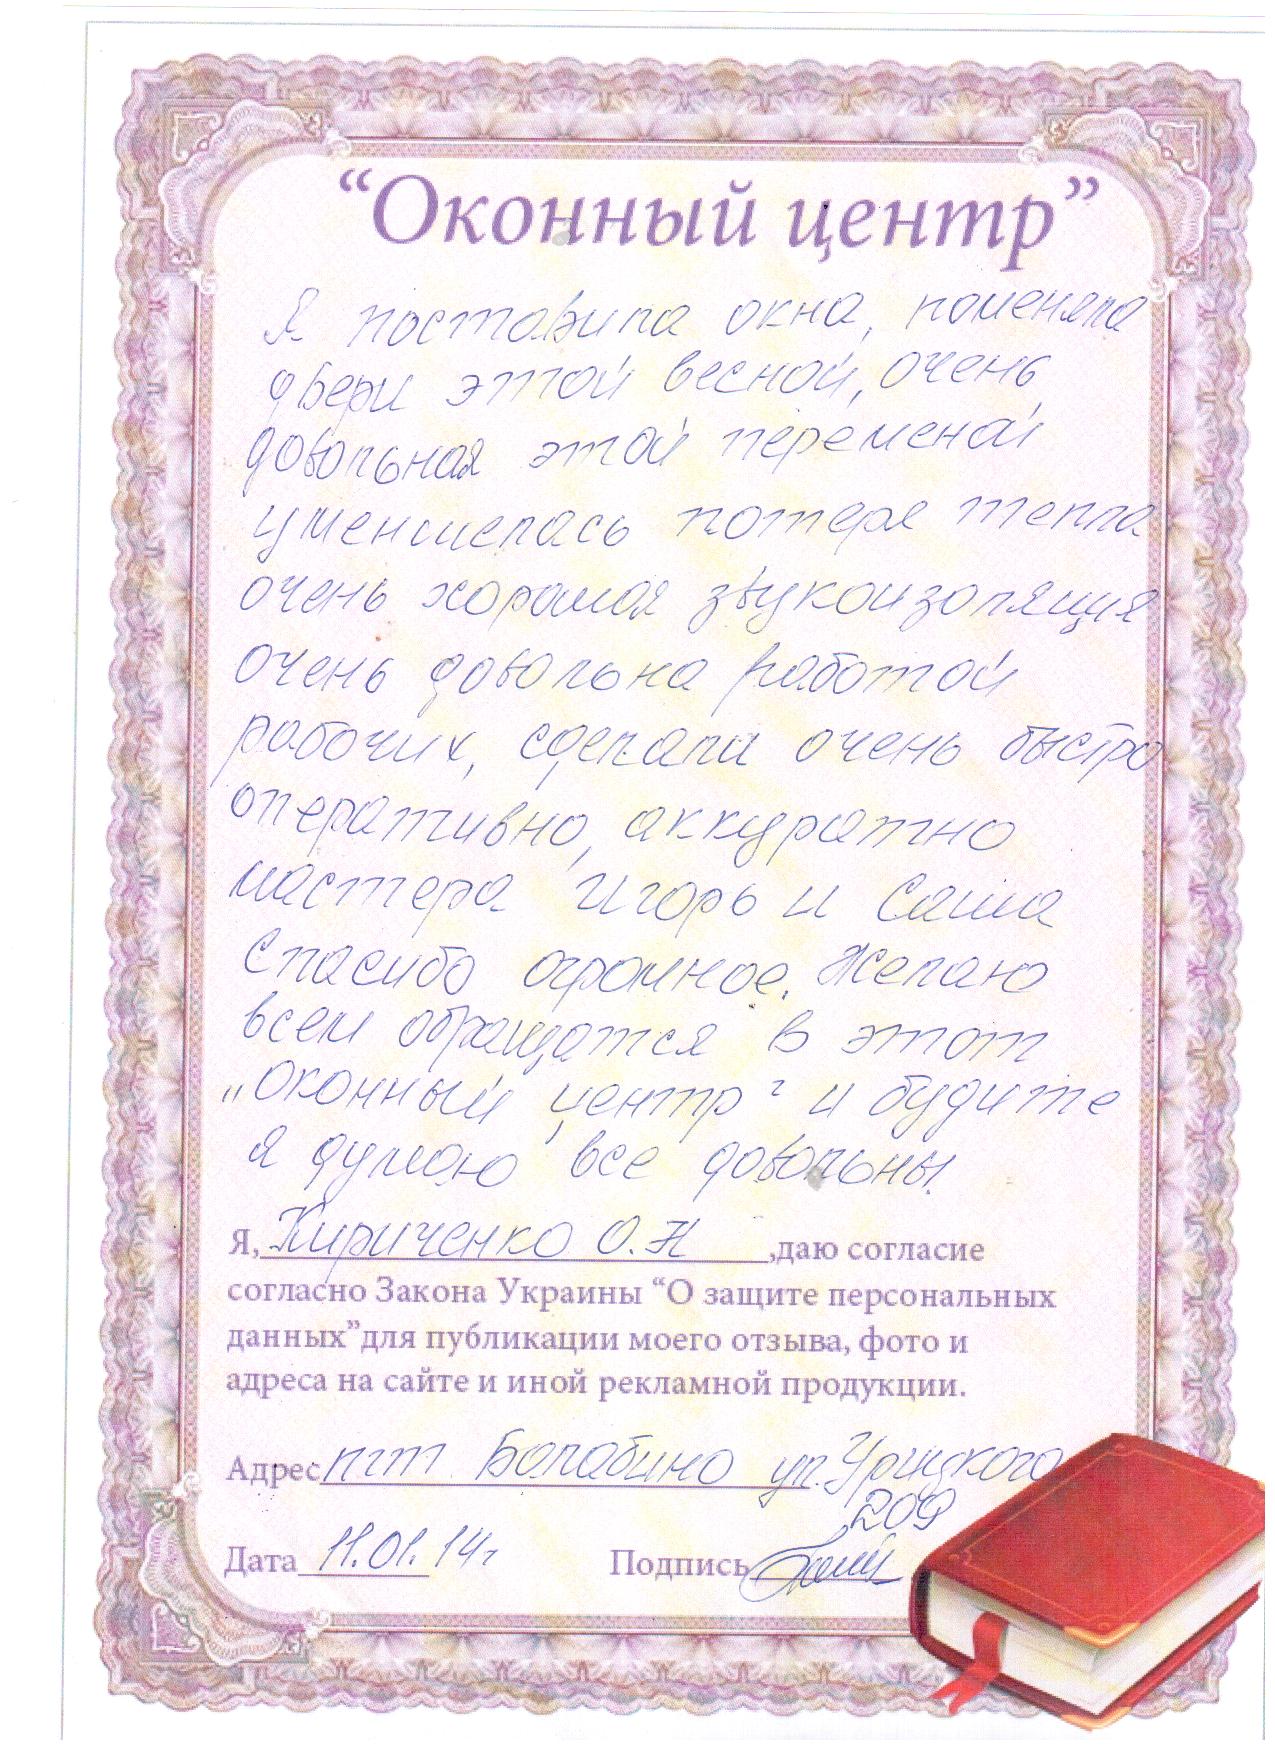 “Оконный центр”
Я поставила окна, поменяла
двери этой весной, очень
довольная этой переменой
уменшелась потеря тепла
очень хорошая звукоизоляция
очень довольна работой
рабочих, сделали очень быстро
оперативно, аккуратно
мастера Игорь и Саша
Спасибо огромное. Желаю
всем обращатся в этот
„Оконный центр“ и будите
я думаю все довольны.
Я, Кириченко О.Н ,даю согласие
согласно Закона Украины “О защите персональных
данных”для публикации моего отзыва, фото и
адреса на сайте и иной рекламной продукции.
Адрес пгт Балабино ул. Урицкого
209
Дата 11.01.14г Подпись